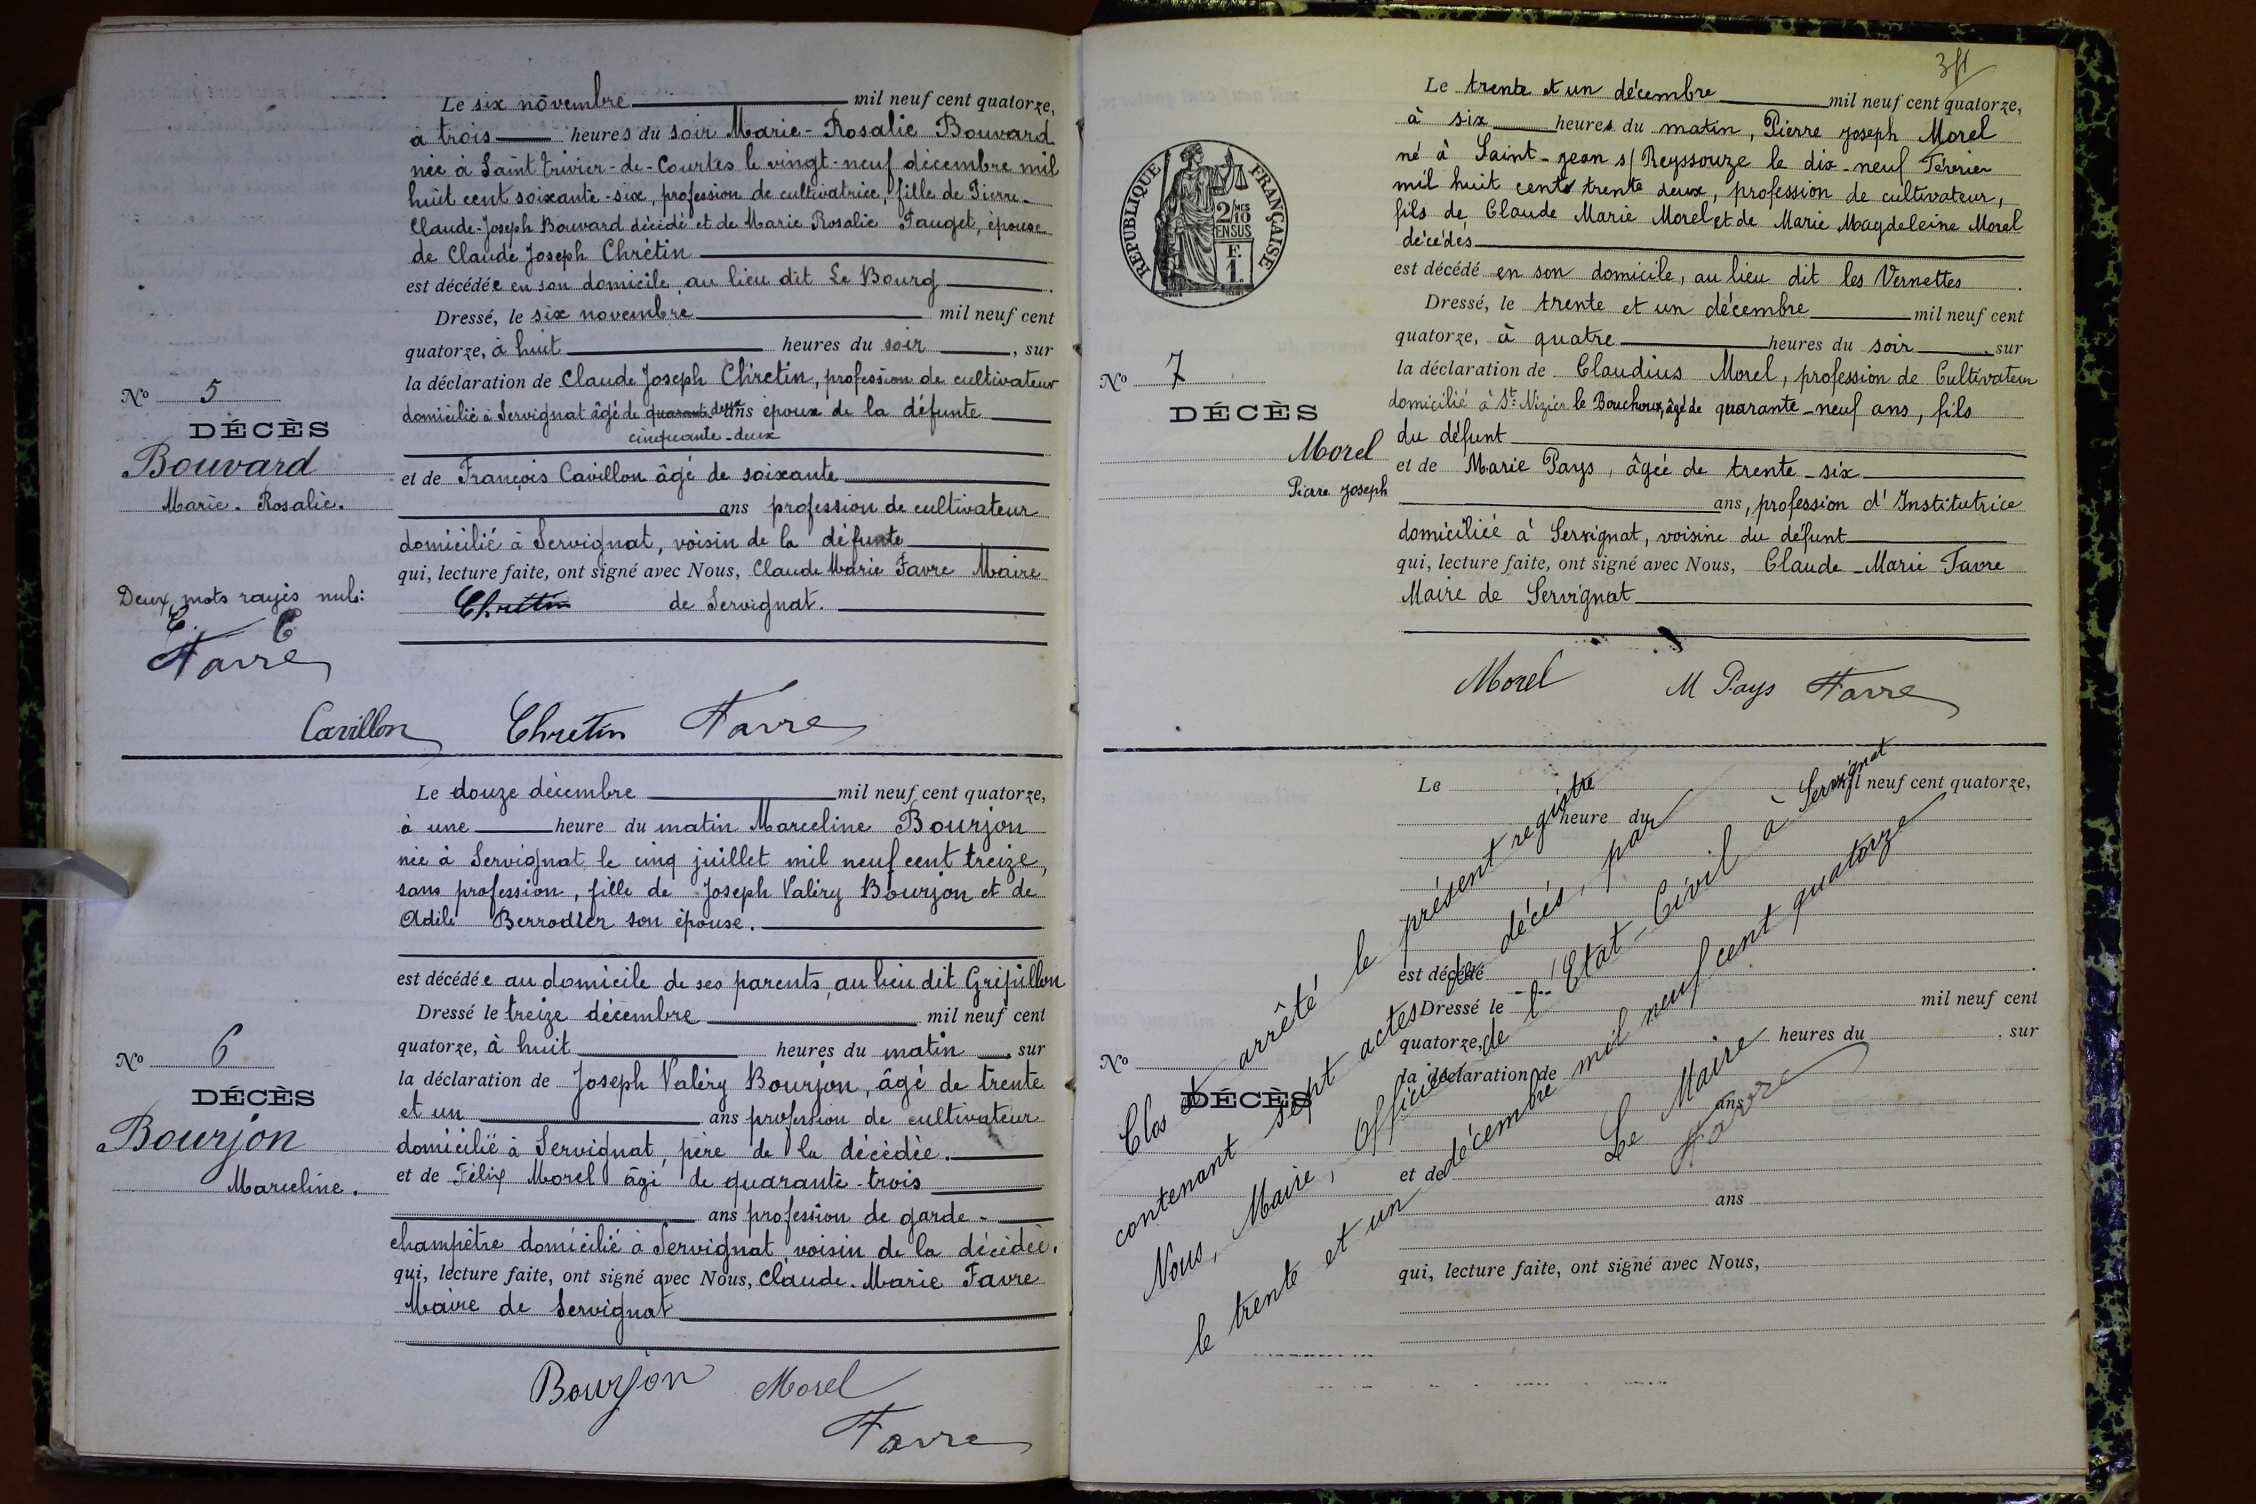 Le six novembre mil neuf cent quatorze,
à trois heures du soir Marie-Rosalie Bouvard
née à Saint Trivier-de-Courtes le vingt-neuf décembre mil
huit cent soixante-six, profession de cultivatrice, fille de Pierre-
Claude-Joseph Bouvard décédé et de Marie Rosalie Pauget, épouse
de Claude Joseph Chrétin
est décédée en son domicile, au lieu dit Le Bourg.
Dressé, le six novembre mil neuf cent
quatorze, à huit heures du soir, sur
la déclaration de Claude Joseph Chrétin, profession de cultivateur
domicilié à Servignat âgé de quarante deux ans époux de la défunte
cinquante-deux
et de François Cavillon âgé de soixante
ans profession de cultivateur
domicilié à Servignat, voisin de la défunte
qui, lecture faite, ont signé avec Nous, Claude Marie Favre Maire
Chretin de Servignat.
No 5
DÉCÈS
Bouvard
Marie-Rosalie.
Deux mots rayés nuls:
C. C
Favre
Cavillon Chretin Favre
Le douze décembre mil neuf cent quatorze,
à une heure du matin Marceline Bourjon
née à Servignat le cinq juillet mil neuf cent treize,
sans profession, fille de Joseph Valéry Bourjon et de
Adèle Berrodier son épouse.
est décédée au domicile de ses parents, au lieu dit Grifillon
Dressé le treize décembre mil neuf cent
quatorze, à huit heures du matin, sur
la déclaration de Joseph Valéry Bourjon, âgé de trente
et un ans profession de cultivateur
domicilié à Servignat, père de la décédée.
et de Félix Morel âgé de quarante-trois
ans profession de garde-
champêtre domicilié à Servignat voisin de la décédée.
qui, lecture faite, ont signé avec Nous, Claude-Marie Favre
Maire de Servignat
No 6
DÉCÈS
Bourjon
Marceline.
Bourjon Morel
Favre
RÉPUBLIQUE FRANÇAISE
2/10 MES
EN SUS
F.
1.
Le trente et un décembre mil neuf cent quatorze,
à six heures du matin, Pierre Joseph Morel
né à Saint-Jean s/ Reyssouze le dix-neuf Février
mil huit cent trente deux, profession de cultivateur,
fils de Claude Marie Morel et de Marie Magdeleine Morel
décédés
est décédé en son domicile, au lieu dit les Vernettes.
Dressé, le trente et un décembre mil neuf cent
quatorze, à quatre heures du soir, sur
la déclaration de Claudius Morel, profession de Cultivateur
domicilié à St. Nizier le Bouchoux, âgé de quarante-neuf ans, fils
du défunt
et de Marie Pays, âgée de trente-six
ans, profession d'Institutrice
domiciliée à Servignat, voisine du défunt
qui, lecture faite, ont signé avec Nous, Claude-Marie Favre
Maire de Servignat
No 7
DÉCÈS
Morel
Pierre Joseph
Morel M Pays Favre
Le mil neuf cent quatorze,
heure du
est décédé
Dressé le mil neuf cent
quatorze, heures du , sur
la déclaration de
ans
et de
ans
qui, lecture faite, ont signé avec Nous,
No
DÉCÈS
Clos et arrêté le présent registre
contenant sept actes de décès, par
Nous, Maire, Officier de l'Etat-Civil à Servignat
le trente et un décembre mil neuf cent quatorze
Le Maire
Favre